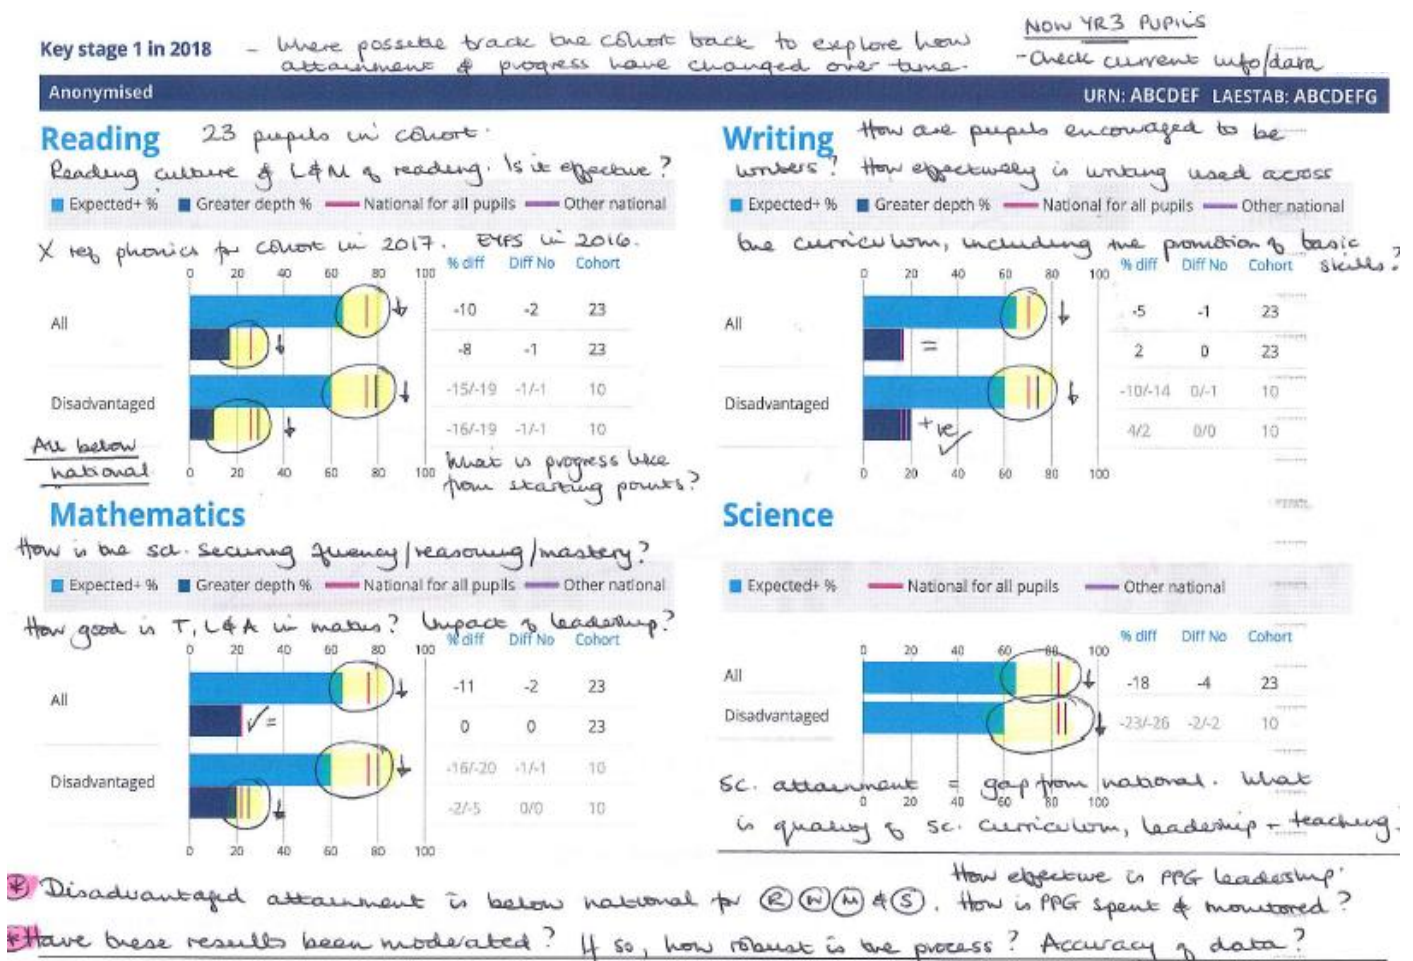 Key stage 1 in 2018 - Where possible track the cohort back to explore how
attainment & progress have changed over time.
NOW YR3 PUPILS
- Check current info/data
Anonymised URN: ABCDEF LAESTAB: ABCDEFG
Reading 23 pupils in cohort.
Reading culture & L&M of reading. Is it effective?
Expected+ % Greater depth % National for all pupils Other national
X ref phonics for cohort in 2017. EYFS in 2016.
% diff Diff No Cohort
0 20 40 60 80 100
All -10 -2 23
-8 -1 23
Disadvantaged -15/-19 -1/-1 10
-16/-19 -1/-1 10
All below
national
0 20 40 60 80 100
What is progress like
from starting points?
Writing How are pupils encouraged to be
writers? How effectively is writing used across
Expected+ % Greater depth % National for all pupils Other national
the curriculum, including the promotion of basic
skills?
% diff Diff No Cohort
0 20 40 60 80 100
All -5 -1 23
= 2 0 23
Disadvantaged -10/-14 0/-1 10
+ve 4/2 0/0 10
0 20 40 60 80 100
Mathematics
How is the sch. securing fluency/reasoning/mastery?
Expected+ % Greater depth % National for all pupils Other national
How good is T, L & A in maths? Impact of leadership?
% diff Diff No Cohort
0 20 40 60 80 100
All -11 -2 23
= 0 0 23
Disadvantaged -16/-20 -1/-1 10
-2/-5 0/0 10
0 20 40 60 80 100
Science
Expected+ % National for all pupils Other national
% diff Diff No Cohort
0 20 40 60 80 100
All -18 -4 23
Disadvantaged -23/-26 -2/-2 10
Sc. attainment = gap from national. What
0 20 40 60 80 100
is quality of sc. curriculum, leadership + teaching.
How effective is PPG leadership.
* Disadvantaged attainment is below national for R W M & S. How is PPG spent & monitored?
* Have these results been moderated? If so, how robust is the process? Accuracy of data?